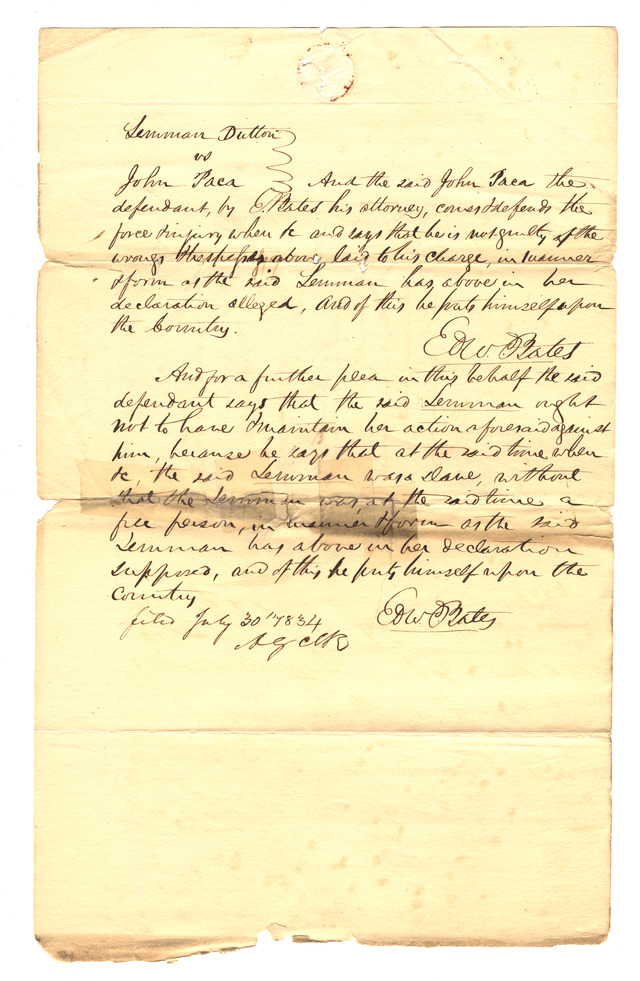 Lemmon Dutton
vs
John Paca And the said John Paca the
defendant, by E. Bates his attorney, comes & defends the
force & injury when &c and says that he is not guilty of the
wrongs & trespasses above laid to his charge, in manner
& form as the said Lemmon has above in her
declaration alleged, and of this he puts himself upon
the Country.
Edw. Bates
And for a further plea in this behalf the said
defendant says that the said Lemmon ought
not to have & maintain her action aforesaid against
him, because he says that at the said time when
&c, the said Lemmon was a slave, without
that the Lemmon was, at the said time a
free person, in manner & form as the said
Lemmon has above in her declaration
supposed, and of this he puts himself upon the
Country
Edw. Bates
filed July 30th 1834
A G Clk